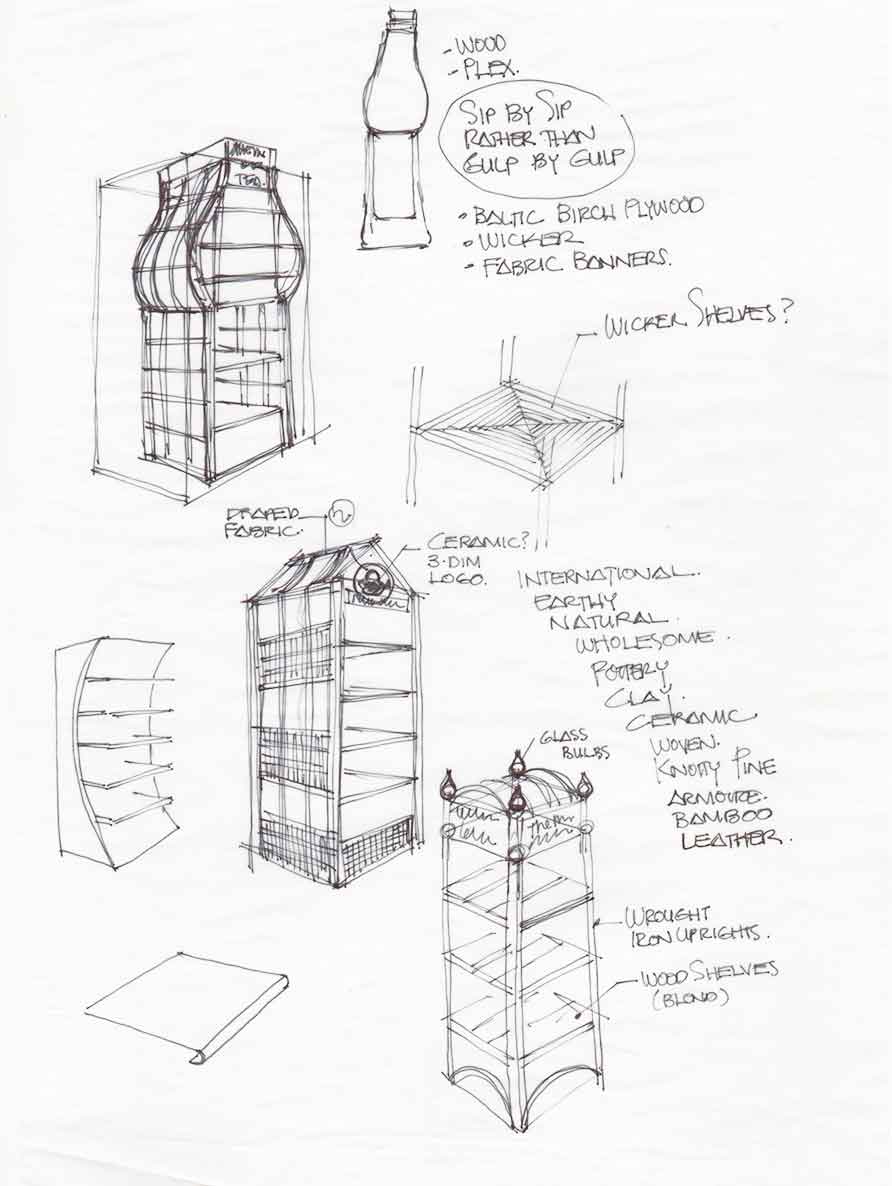 - WOOD
- PLEX.
SIP BY SIP
RATHER THAN
GULP BY GULP
• BALTIC BIRCH PLYWOOD
• WICKER
• FABRIC BANNERS.
WICKER SHELVES?
TEA.
DRAPED
FABRIC.
CERAMIC?
3-DIM
LOGO.
INTERNATIONAL.
EARTHY
NATURAL.
WHOLESOME.
POTTERY
CLAY.
CERAMIC
WOVEN.
KNOTTY PINE
ARMOIRE.
BAMBOO
LEATHER.
GLASS
BULBS
WROUGHT
IRON UPRIGHTS.
WOOD SHELVES
(BLOND)